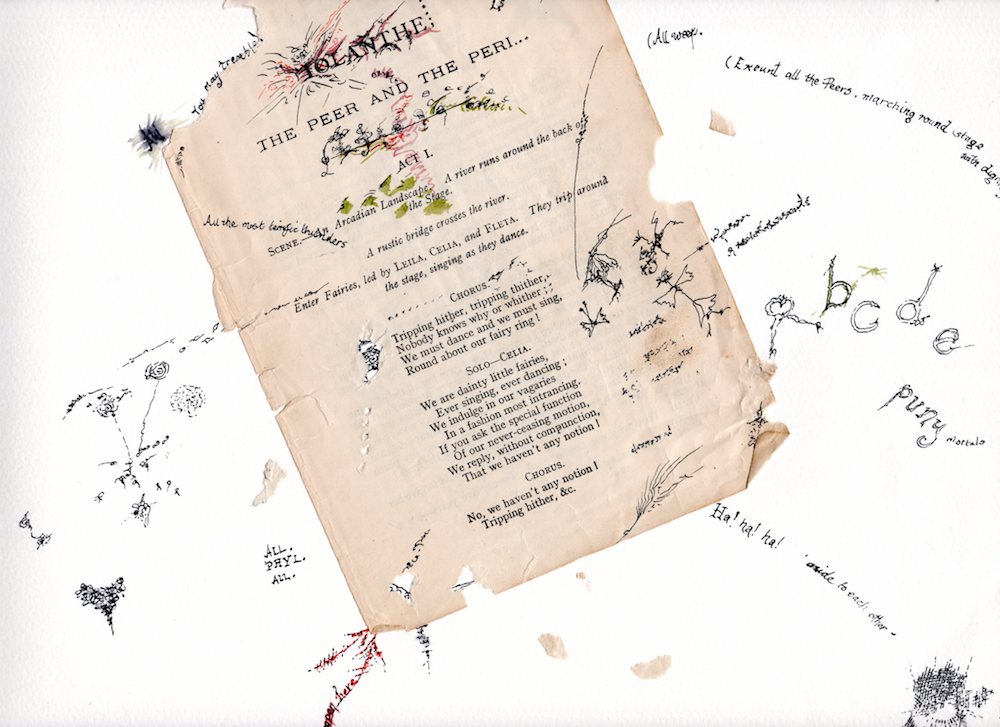 You may tremble!
IOLANTHE;
OR
THE PEER AND THE PERI...
ACT I.
SCENE.—An Arcadian Landscape. A river runs around the back of
the Stage.
A rustic bridge crosses the river.
Enter Fairies, led by LEILA, CELIA, and FLETA. They trip around
the stage, singing as they dance.
CHORUS.
Tripping hither, tripping thither,
Nobody knows why or whither;
We must dance and we must sing,
Round about our fairy ring!
SOLO—CELIA.
We are dainty little fairies,
Ever singing, ever dancing;
We indulge in our vagaries
In a fashion most intrancing.
If you ask the special function
Of our never-ceasing motion,
We reply, without compunction,
That we haven't any notion!
CHORUS.
No, we haven't any notion!
Tripping hither, &c.
All the most terrific thunders
(All weep.
(Exeunt all the Peers, marching round stage
with
a b c d e
puny
mortals
Ha! ha! ha!
aside to each other
ALL.
PHYL.
ALL.
here